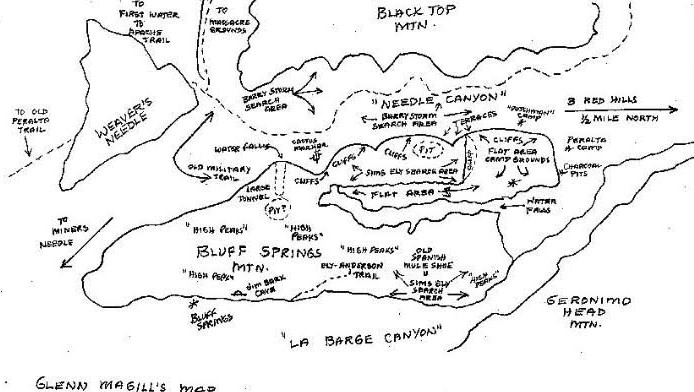 TO
FIRST WATER
TO
APACHE
TRAIL
TO
MASSACRE
GROUNDS
BLACK TOP
MTN.
TO OLD
PERALTA
TRAIL
WEAVER'S
NEEDLE
BARRY STORM
SEARCH
AREA
"NEEDLE CANYON"
BARRY STORM
SEARCH AREA
TERRACES
"DUTCHMAN'S"
CAMP
3 RED HILLS
1/2 MILE NORTH
WATER FALLS
CACTUS
MARKER
CLIFFS
CLIFFS
PIT
CLIFFS
FLAT AREA
CAMP GROUNDS
PERALTA
CAMP
CHARCOAL
PITS
OLD MILITARY
TRAIL
LARGE
TUNNEL
CLIFFS
SIMS ELY SEARCH AREA
FLAT AREA
PIT?
WATER
FALLS
TO
MINERS
NEEDLE
"HIGH PEAKS"
"HIGH
PEAKS"
BLUFF SPRINGS
MTN.
"HIGH PEAKS"
OLD
SPANISH
MULE SHOE
U
ELY-ANDERSON
TRAIL
"HIGH PEAK"
JIM BARK
CAVE
SIMS ELY
SEARCH
AREA
"HIGH
PEAKS"
BLUFF
SPRINGS
GERONIMO
HEAD
MTN.
"LA BARGE CANYON"
GLENN MAGILL'S MAP